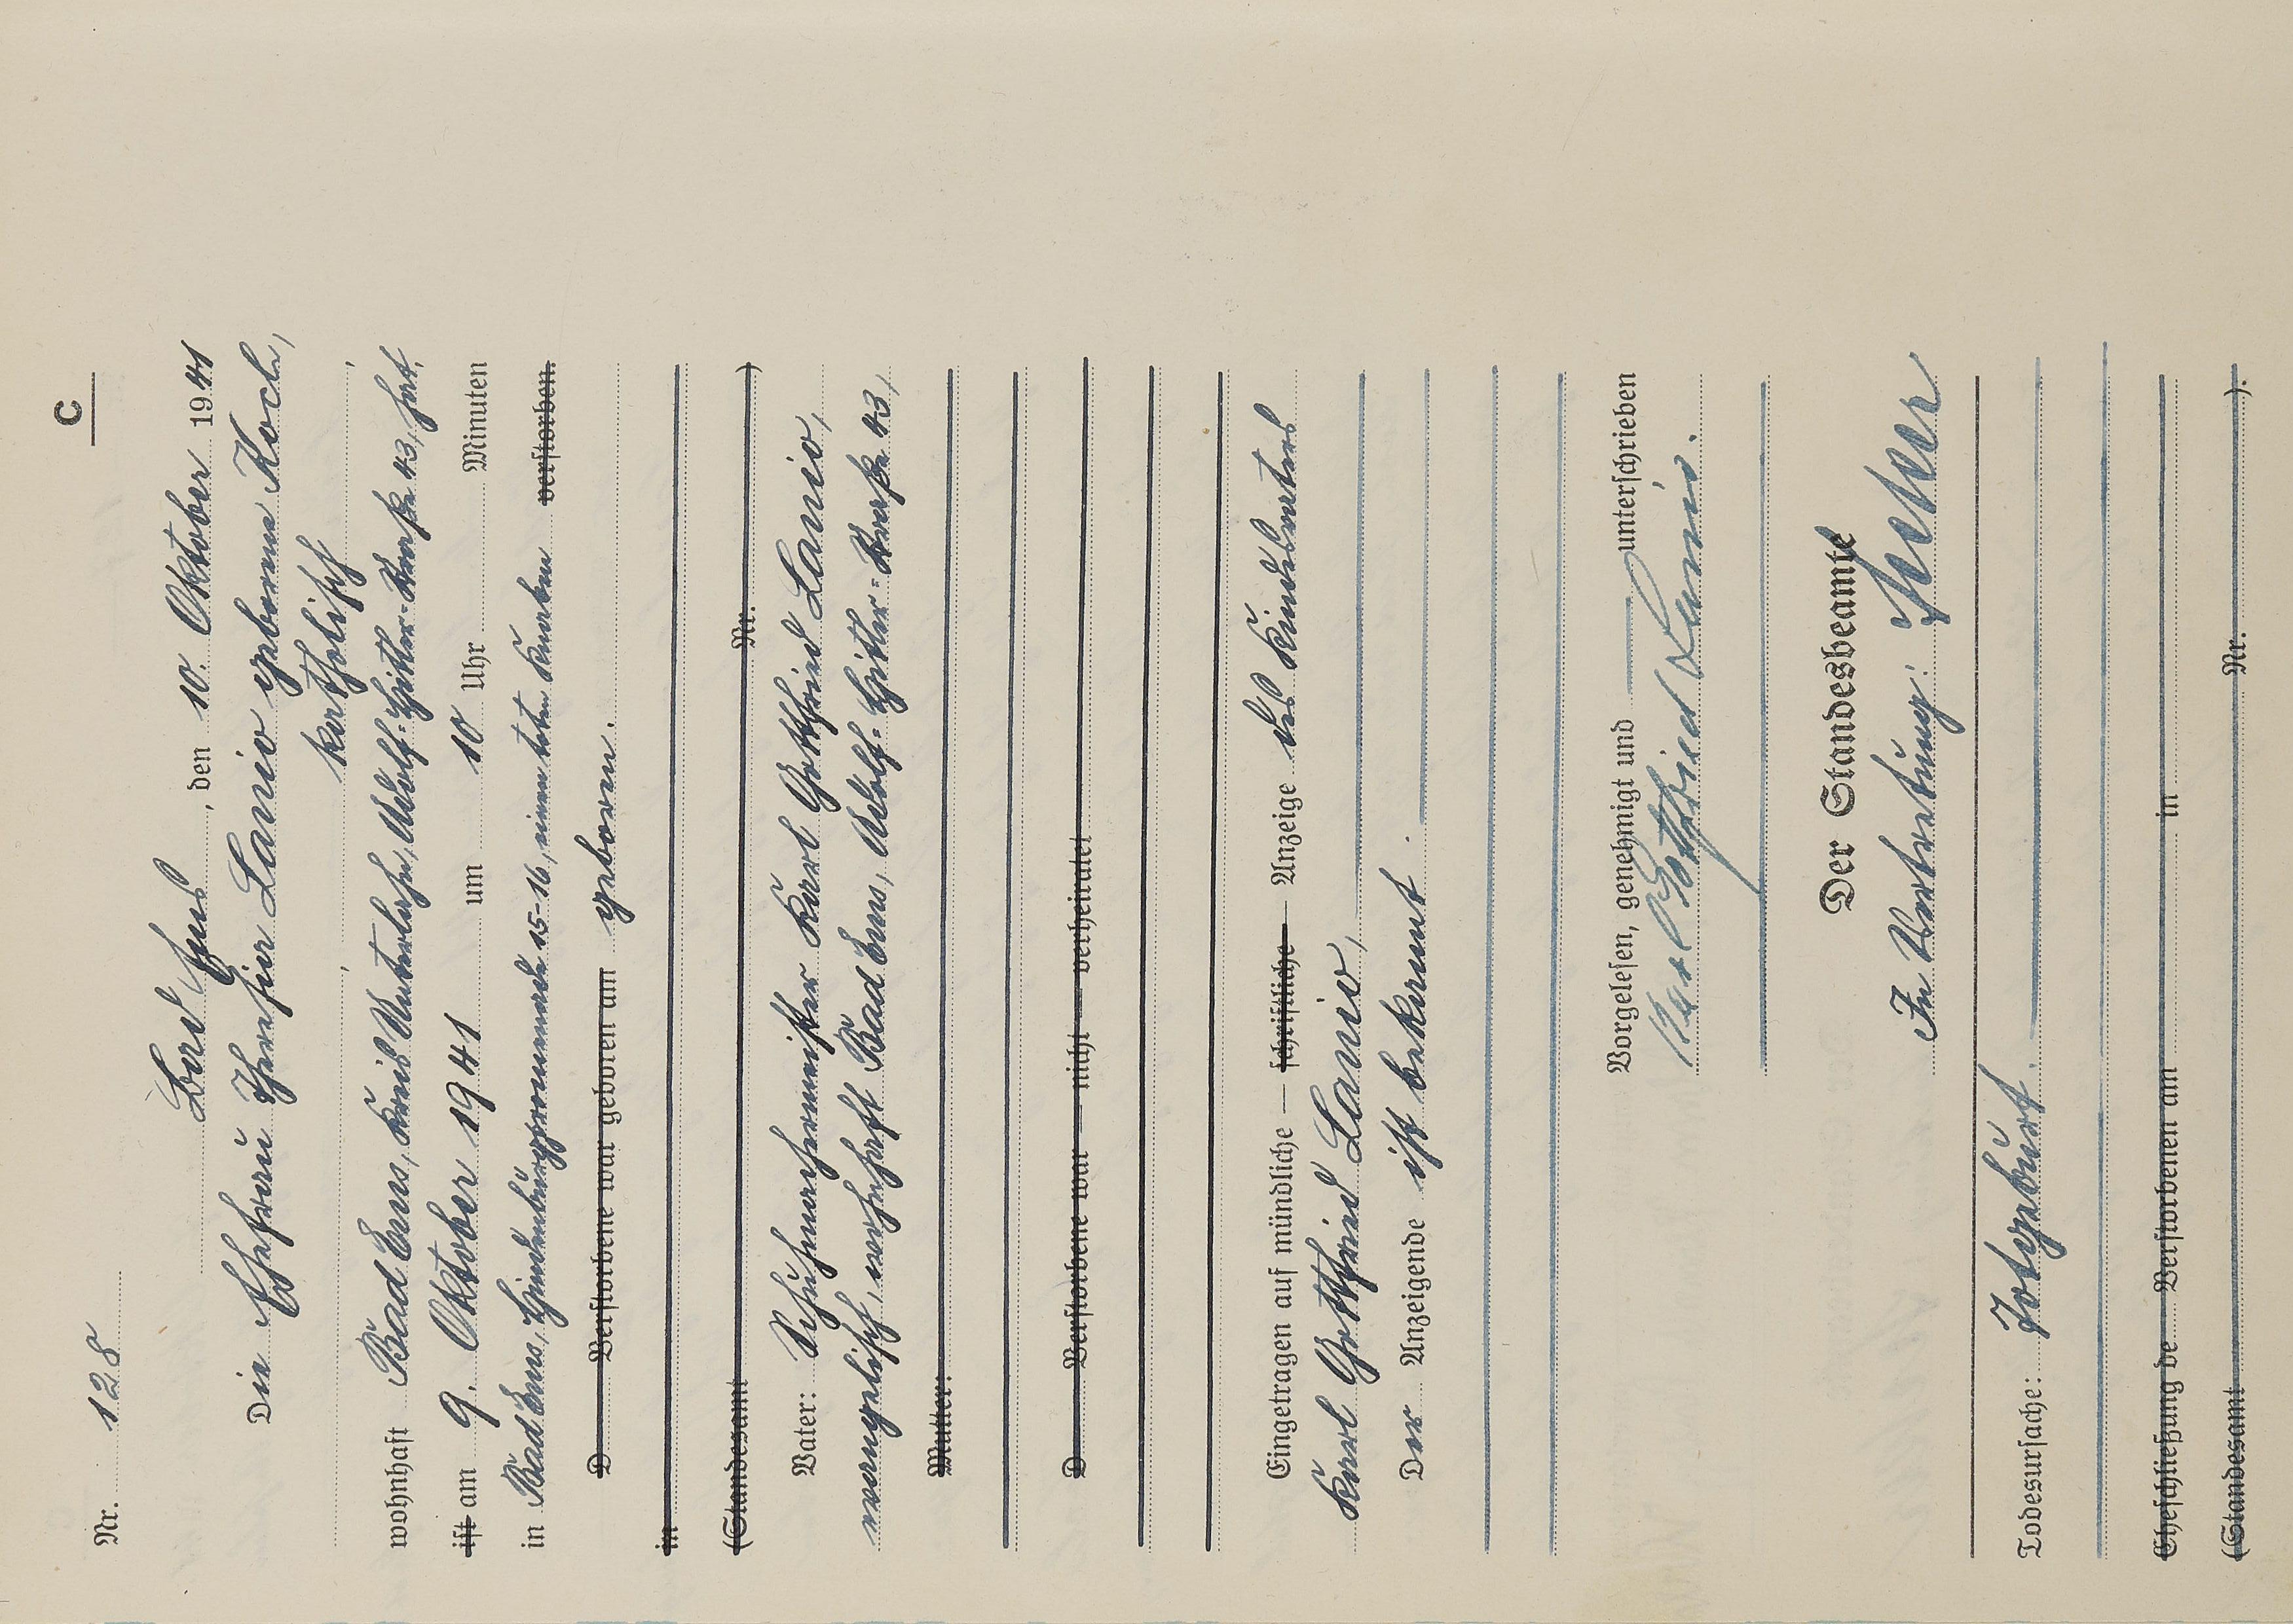 C
Nr. 128
Bad Ems, den 10. Oktober 1941
Die Ehefrau Theresia Lanio geborene Koch,
katholisch
wohnhaft Bad Ems, Kreis Unterlahn, Adolf-Hitler-Straße 43, hat
ist am 9. Oktober 1941 um 10 Uhr Minuten
in Bad Ems, Hindenburgpromenade 15-16, einen toten Knaben verstorben.
D Verstorbene war geboren am geboren.
in
(Standesamt Nr. )
Vater: Schuhmachermeister Karl Gottfried Lanio,
evangelisch, wohnhaft Bad Ems, Adolf-Hitler-Straße 43,
Mutter:
D Verstorbene war — nicht — verheiratet
Eingetragen auf mündliche — schriftliche — Anzeige des Kindesvaters
Karl Gottfried Lanio,
Der Anzeigende ist bekannt.
Vorgelesen, genehmigt und unterschrieben
Karl Gottfried Lanio.
Der Standesbeamte
In Vertretung:
Todesursache: Totgeburt.
Eheschließung de Verstorbenen am in
(Standesamt Nr. ).